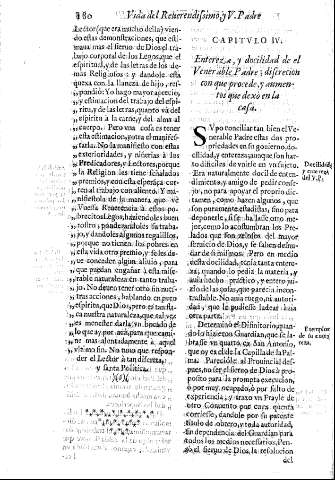 180 Vida del Reverendissimo, y V. Padre
Lector (que era mucho della) vien-
do estas demonstraciones, que esti-
mava mas el siervo de Dios al tra-
bajo corporal de los Legos, que el
espiritual, y de las letras de los de-
mas Religiosos: y dandole esta
quexa con la llaneza de hijo, res-
pondió: Yo hago mayor aprecio,
y estimacion del trabajo del espi-
ritu, y de las letras, quanto vá del
espiritu à la carne, y del alma al
cuerpo. Pero una cosa es tener
esta estimacion, y otra el manifes-
tarla. No la manifiesto con estas
exterioridades, y niñerias à los
Predicadores, y Lectores, porque
la Religion les tiene señalados
premios, y con esta
en al trabajo con aliento. Y mi-
de la manera que vè
Vuessa Reverencia à estos po-
brecitos Legos, haziendoles buen
rostro, y alabandoles su traba-
jo, y dandoles algunos regalillos,
porque no tienen los pobres en
esta vida otro premio, y se les de-
ve conceder algun alivio, para
que puedan engañar à esta mise-
rable naturaleza en tanto traba-
jo. No deven tener otro fin nues-
tras acciones, hablando en pere
espiritu, que Dios; pero es tan fla-
ca nuestra naturaleza, que tal vez
es menester darla un bocado de
lo que ay por acà, para que cami-
ne mas alentadamente à aquel
ultimo fin. No tuvo que respon-
der el Lector à tan discreta,
y santa Politica.
)(§)(
CAPITVLO IV.
Entereza, y docilidad de el
Venerable Padre; discrecion
con que procede, y aumen-
tos que dexò en la
casa.
SVpo conciliar tan bien el Ve-
nerable Padre estas dos pro-
priedades en su govierno, do-
cilidad, y entereza; aunque son har-
to dificiles de unirse en un sujeto.
Era naturalmente docil de enten-
dimiento, y amigo de pedir conse-
jo, no para apoyar el proprio dic-
tamen, como hazen algunos, que
son puramente estadistas, sino para
deponerle, si se hallasse otro me-
jor, como lo acostumbran los Pre-
lados que son zelosos del mayor
servicio de Dios, y se saben desnu-
dar de si mismos. Pero en medio
de esta docilidad, tenia tanta entere-
za, quando lo pedia la materia, y
avia hecho practico, y entero jui-
zio de las cosas, que parecia incon-
trastable. No avia ruego, ni autori-
dad, que le pudiesse ladear àzia
otra parte.
Docilidad,
y entereza
del V. P.
Determinò el Difinitorio, pian-
doso hizieron Guardian, que se la-
brasse un quarto en San Antonio,
que oy es el de la Capilla de la Pal-
ma. Pareciòle al Provincial des-
pues, no ser el siervo de Dios à pro-
posito para la prompta execucion,
por muy ocupado, ò por falto de
experiencia, y traxo un Frayle de
otro Convento por cuya quenta
corriesse, dandole por su patente
titulo de obrero, y toda autoridad,
sin dependencia del Guardian para
todos los medios necessarios. Pen-
sò el siervo de Dios, la resolucion
Exemplar
de su ente-
reza.
del